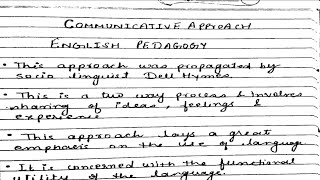 COMMUNICATIVE APPROACH
ENGLISH PEDAGOGY
• This approach was propagated by
socio linguist Dell Hymes.
• This is a two way process & involves
sharing of ideas, feelings &
experience.
• This approach lays a great
emphasis on the use of language.
• It is concerned with the functional
utility of the language.